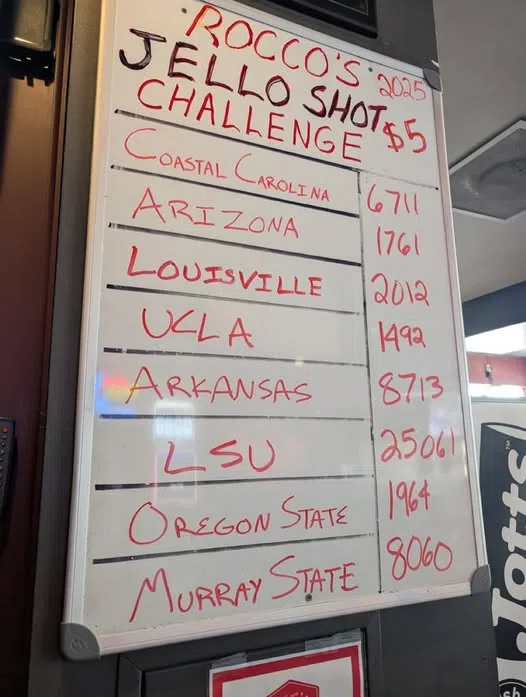 ROCCO'S 2025
JELLO SHOT
CHALLENGE $5
COASTAL CAROLINA 6711
ARIZONA 1761
LOUISVILLE 2012
UCLA 1492
ARKANSAS 8713
LSU 25061
OREGON STATE 1964
MURRAY STATE 8060
Jotts